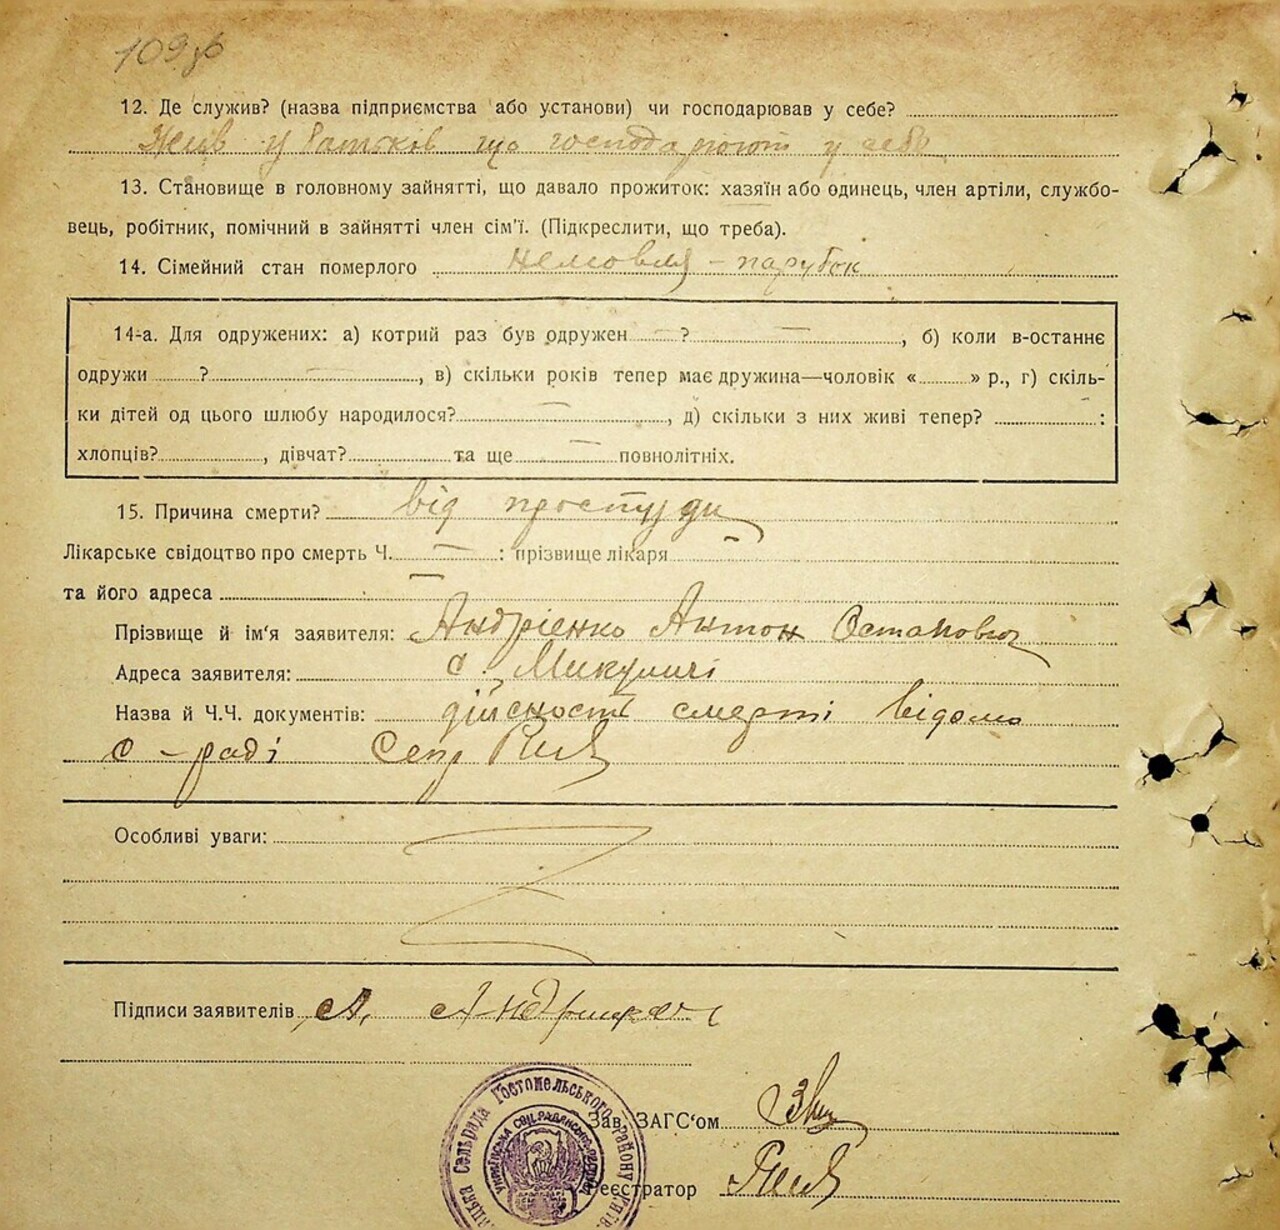 109
12. Де служив? (назва підприємства або установи) чи господарював у себе?
Жив у батьків що господарюют у себе
13. Становище в головному зайнятті, що давало прожиток: хазяїн або одинець, член артіли, службо-
вець, робітник, помічний в зайнятті член сім'ї. (Підкреслити, що треба).
14. Сімейний стан померлого немовля - парубок
14-а. Для одружених: а) котрий раз був одружен — ? —, б) коли в-останнє
одружи ? —, в) скільки років тепер має дружина—чоловік « » р., г) скіль-
ки дітей од цього шлюбу народилося? —, д) скільки з них живі тепер? — :
хлопців? , дівчат? та ще — повнолітніх.
15. Причина смерти? від простуди
Лікарське свідоцтво про смерть Ч. — : прізвище лікаря —
та його адреса —
Прізвище й ім'я заявителя: Андрієнко Антон Остапович
Адреса заявителя: с. Микуличі
Назва й Ч.Ч. документів: дійсность смерті відома
с-раді
Особливі уваги:
Підписи заявителів А.
Зав. ЗАГС'ом
Реєстратор
Сельрада Гостомельського району
Українська Соц. Радянська